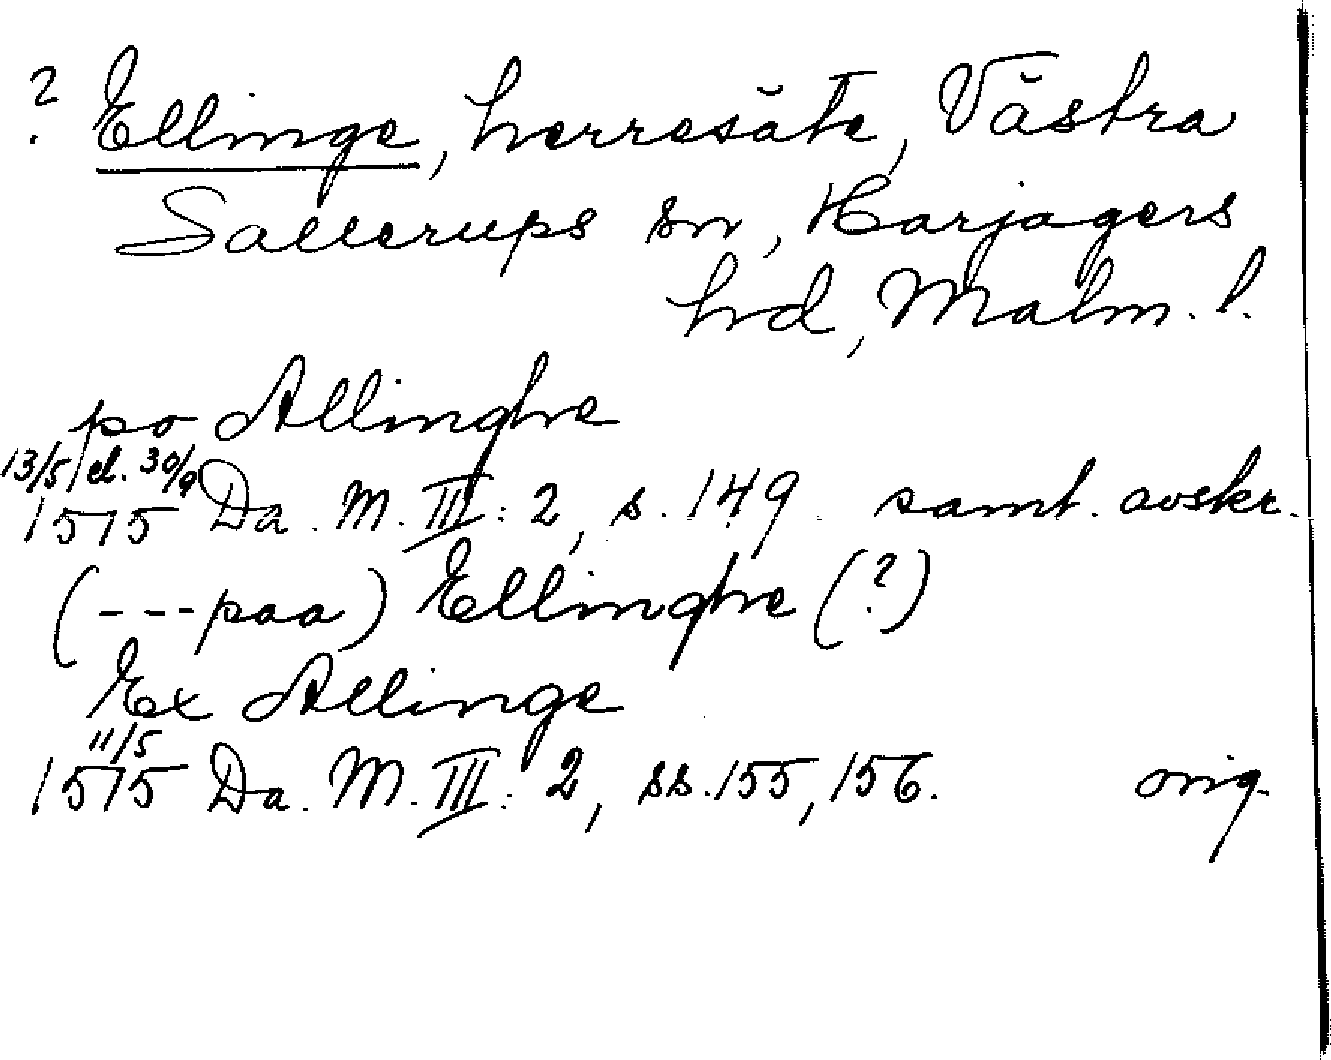 ? Ellinge, herresäte, Västra
Sallerups sn, Harjagers
hrd, Malm. l.
po Allinghe
13/5 el. 30/9
1515 Da. M. III: 2, s. 149. samt. avskr.
(---paa) Ellinghe (?)
Ex Allinge
11/5
1515 Da. M. III: 2, ss. 155, 156. orig.